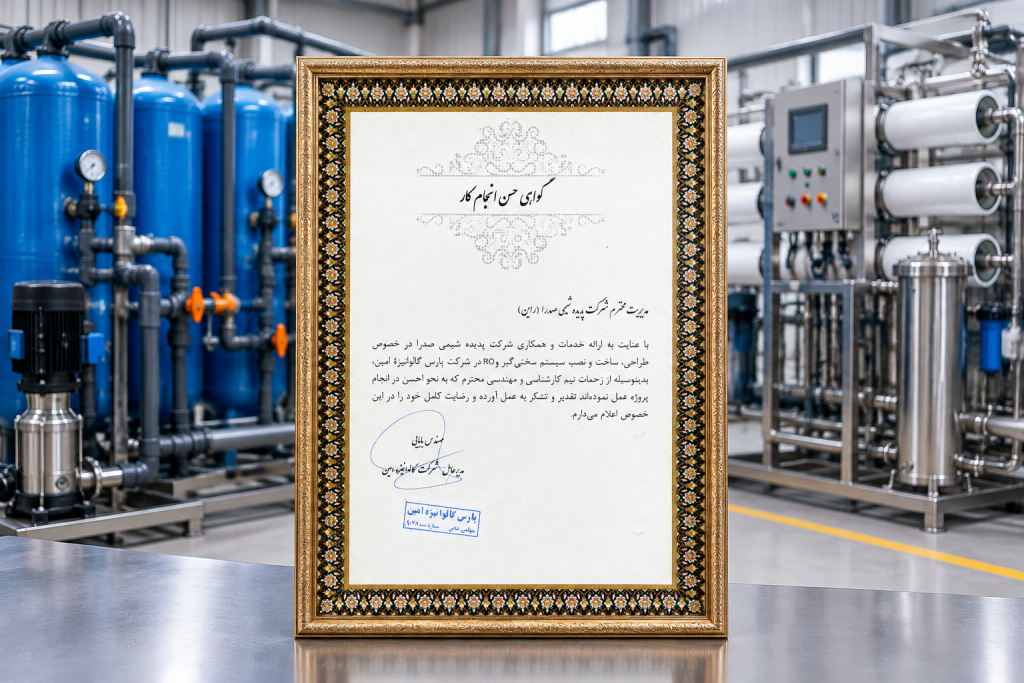 گواهی حسن انجام کار
مدیریت محترم شرکت پدیده شیمی صدرا (راین)
با عنایت به ارائه خدمات و همکاری شرکت پدیده شیمی صدرا در خصوص
طراحی، ساخت و نصب سیستم سختی‌گیر و RO در شرکت پارس گالوانیزهٔ امین،
بدینوسیله از زحمات تیم کارشناسی و مهندسی محترم که به نحو احسن در انجام
پروژه عمل نموده‌اند تقدیر و تشکر به عمل آورده و رضایت کامل خود را در این
خصوص اعلام می‌دارم.
مهندس بابایی
مدیرعامل شرکت گالوانیزه امین
پارس گالوانیزه امین